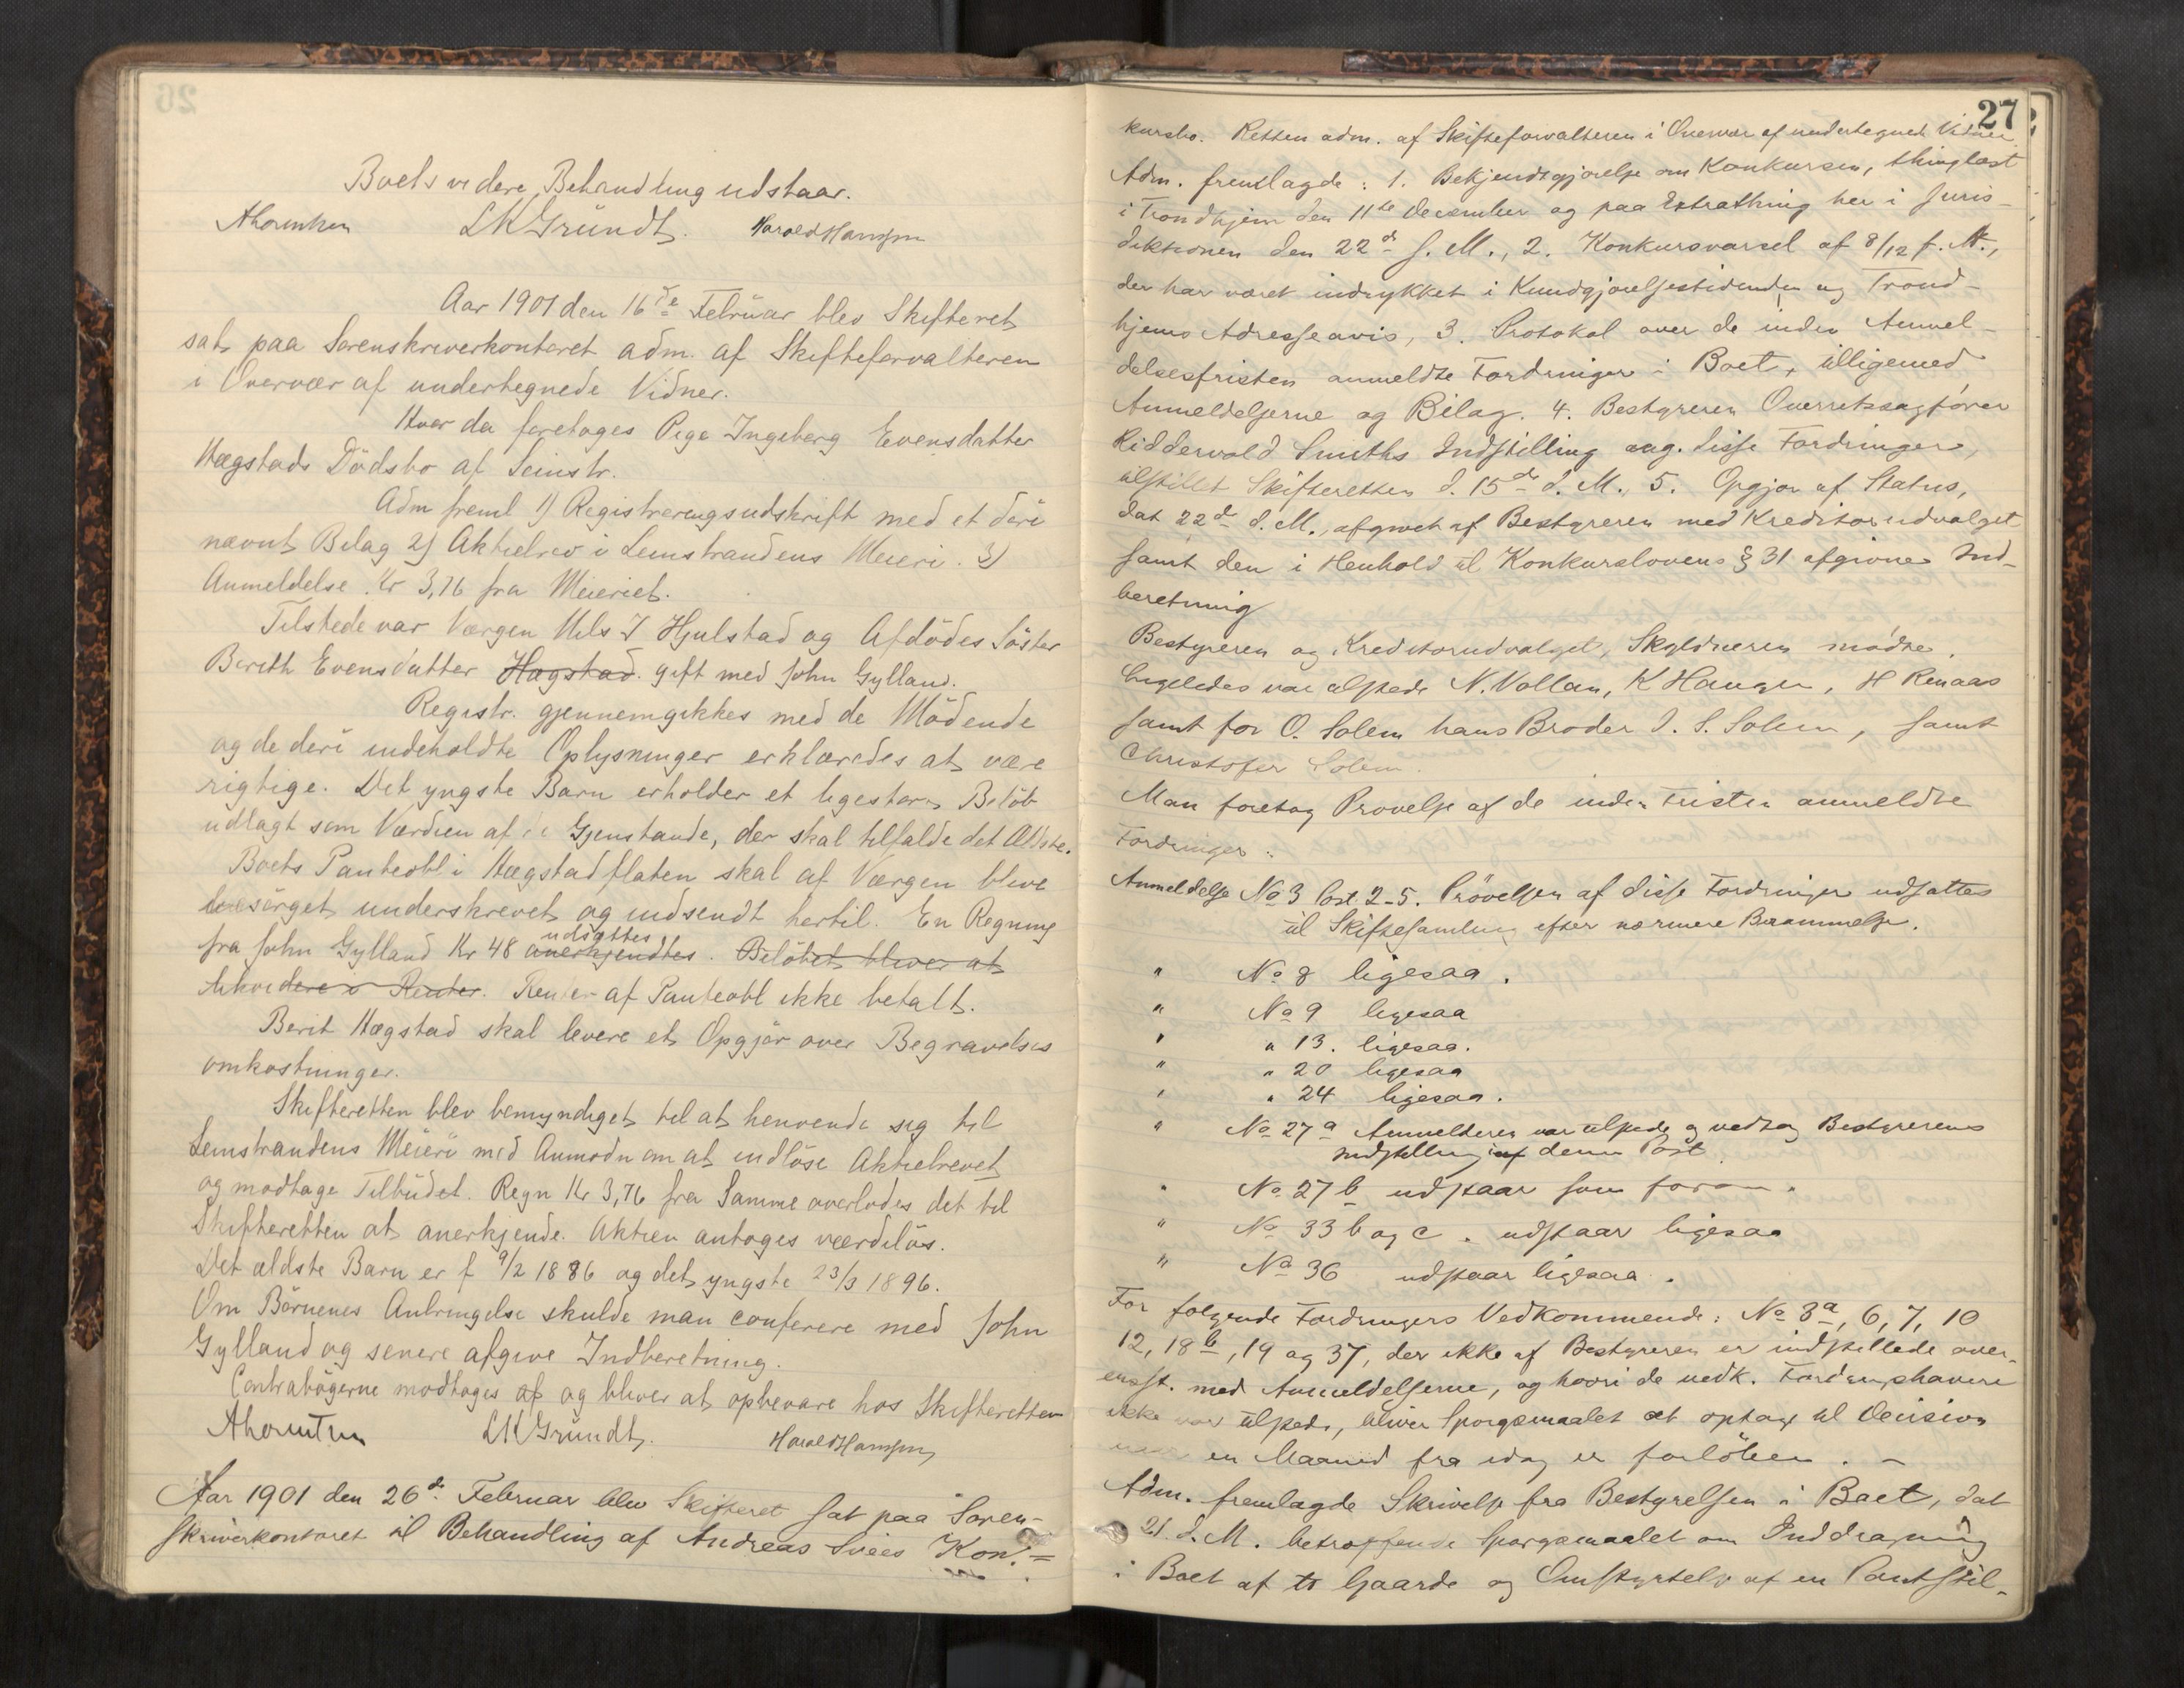 Boets videre Behandling udstaar.
LKGründt. Harald Hansen
Aar 1901 den 16de Februar blev Skifteret
sat paa Sorenskriverkontoret adm. af Skifteforvalteren
i Overvær af undertegnede Vidner.
Hvor da foretoges Pige Ingeborg Evensdatter
Hægstads Dödsbo af Leinstr.
Adm freml 1) Registreringsudskrift med et deri
nævnt Bilag 2) Aktiebrev i Leinstrandens Meieri. 3)
Anmeldelse Kr 3,76 fra Meieriet.
Tilstede var Værgen Nils J Hjulstad og Afdödes Söster
Bereth Evensdatter Hagstad. gift med John Gylland.
Registr. gjennemgikkes med de Mödende
og de deri indeholdte Oplysninger erklæredes at være
rigtige. Det yngste Barn erholder et ligestort Belöb
udlagt som Værdien af de Gjenstande, der skal tilfalde det Ældste.
Boets Panteobl i Hægstadflaten skal af Værgen blive
besörget underskrevet og indsendt hertil. En Regning
udsattes
fra John Gylland Kr 48 anerkjendtes. Belöbet bliver at
likvidere i Renter. Renter af Panteobl ikke betalt.
Berit Hægstad skal levere et Opgjör over Begravelses
omkostninger.
Skifteretten blev bemyndiget til at henvende sig til
Leinstrandens Meieri med Anmodn om at indlöse Aktiebrevet
og modtage Tilbudet. Regn Kr 3,76 fra Samme overlodes det til
Skifteretten at anerkjende. Aktien antoges værdilös.
Det ældste Barn er f 9/2 1886 og det yngste 23/3 1896.
Om Börnenes Anbringelse skulde man conferere med John
Gylland og senere afgive Indberetning.
Contrabögerne modtoges af og bliver at opbevare hos Skifteretten
LKGründt. Harald Hansen
Aar 1901 den 26de Februar blev Skifteret sat paa Soren-
skriverkontoret til Behandling af Andreas Svees Kon-
27
kursbo. Retten adm. af Skifteforvalteren i Overvær af undertegnede Vidner.
Adm. fremlagde: 1. Bekjendtgjörelse om Konkursen, thinglæst
i Trondhjem den 11te December og paa Extrathing her i Juris-
diktionen den 22de s. M., 2. Konkursvarsel af 8/12 f. A.,
der har været indrykket i Kundgjörelsestidende og Trond-
hjems Adresseavis, 3. Protokol over de inden Anmel-
delsesfristen anmeldte Fordringer i Boet, tilligemed
Anmeldelserne og Bilag. 4. Bestyreren Overretssagförer
Riddervold Smiths Indstilling ang. disse Fordringer,
tilstillet Skifteretten d. 15de d. M., 5. Opgjör af Status,
dat 22de d. M., afgivet af Bestyreren med Kreditorudvalget
samt den i Henhold til Konkurslovens § 31 afgivne Ind-
beretning
Bestyreren og Kreditorudvalget, Skyldneren mödte.
Ligeledes var tilstede N. Vollan, K Haugen, H Renaas
samt for O. Solem hans Broder I. S. Solem, samt
Christofer Solem.
Man foretog Prövelse af de inden Fristen anmeldte
Fordringer:
Anmeldelse No 3 Post 2-5. Prövelsen af disse Fordringer udsattes
til Skiftesamling efter nærmere Berammelse.
" No 8 ligesaa.
" No 9 ligesaa
" " 13. ligesaa.
" " 20 ligesaa
" " 24 ligesaa.
" No 27a Anmelderen var tilstede og vedtog Bestyrerens
Indstilling af denne Post.
" No 27b udstaar som foran.
" No 33 b og c. udstaar ligesaa
" No 36 udstaar ligesaa.
For fölgende Fordringers Vedkommende: No 3a, 6, 7, 10
12, 18b, 19 og 37, der ikke af Bestyreren er indstillede over-
ensst. med Anmeldelserne, og hvori de vedk. Fordringshavere
ikke var tilstede, bliver Spörgsmaalet at optage til Decision
naar en Maaned fra idag er forlöben. -
Adm. fremlagde Skrivelse fra Bestyrelsen i Boet, dat
21. d. M. betræffende Spörgsmaalet om Inddragning
i Boet af to Gaarde og Omstyrtelse af en Pantstil-